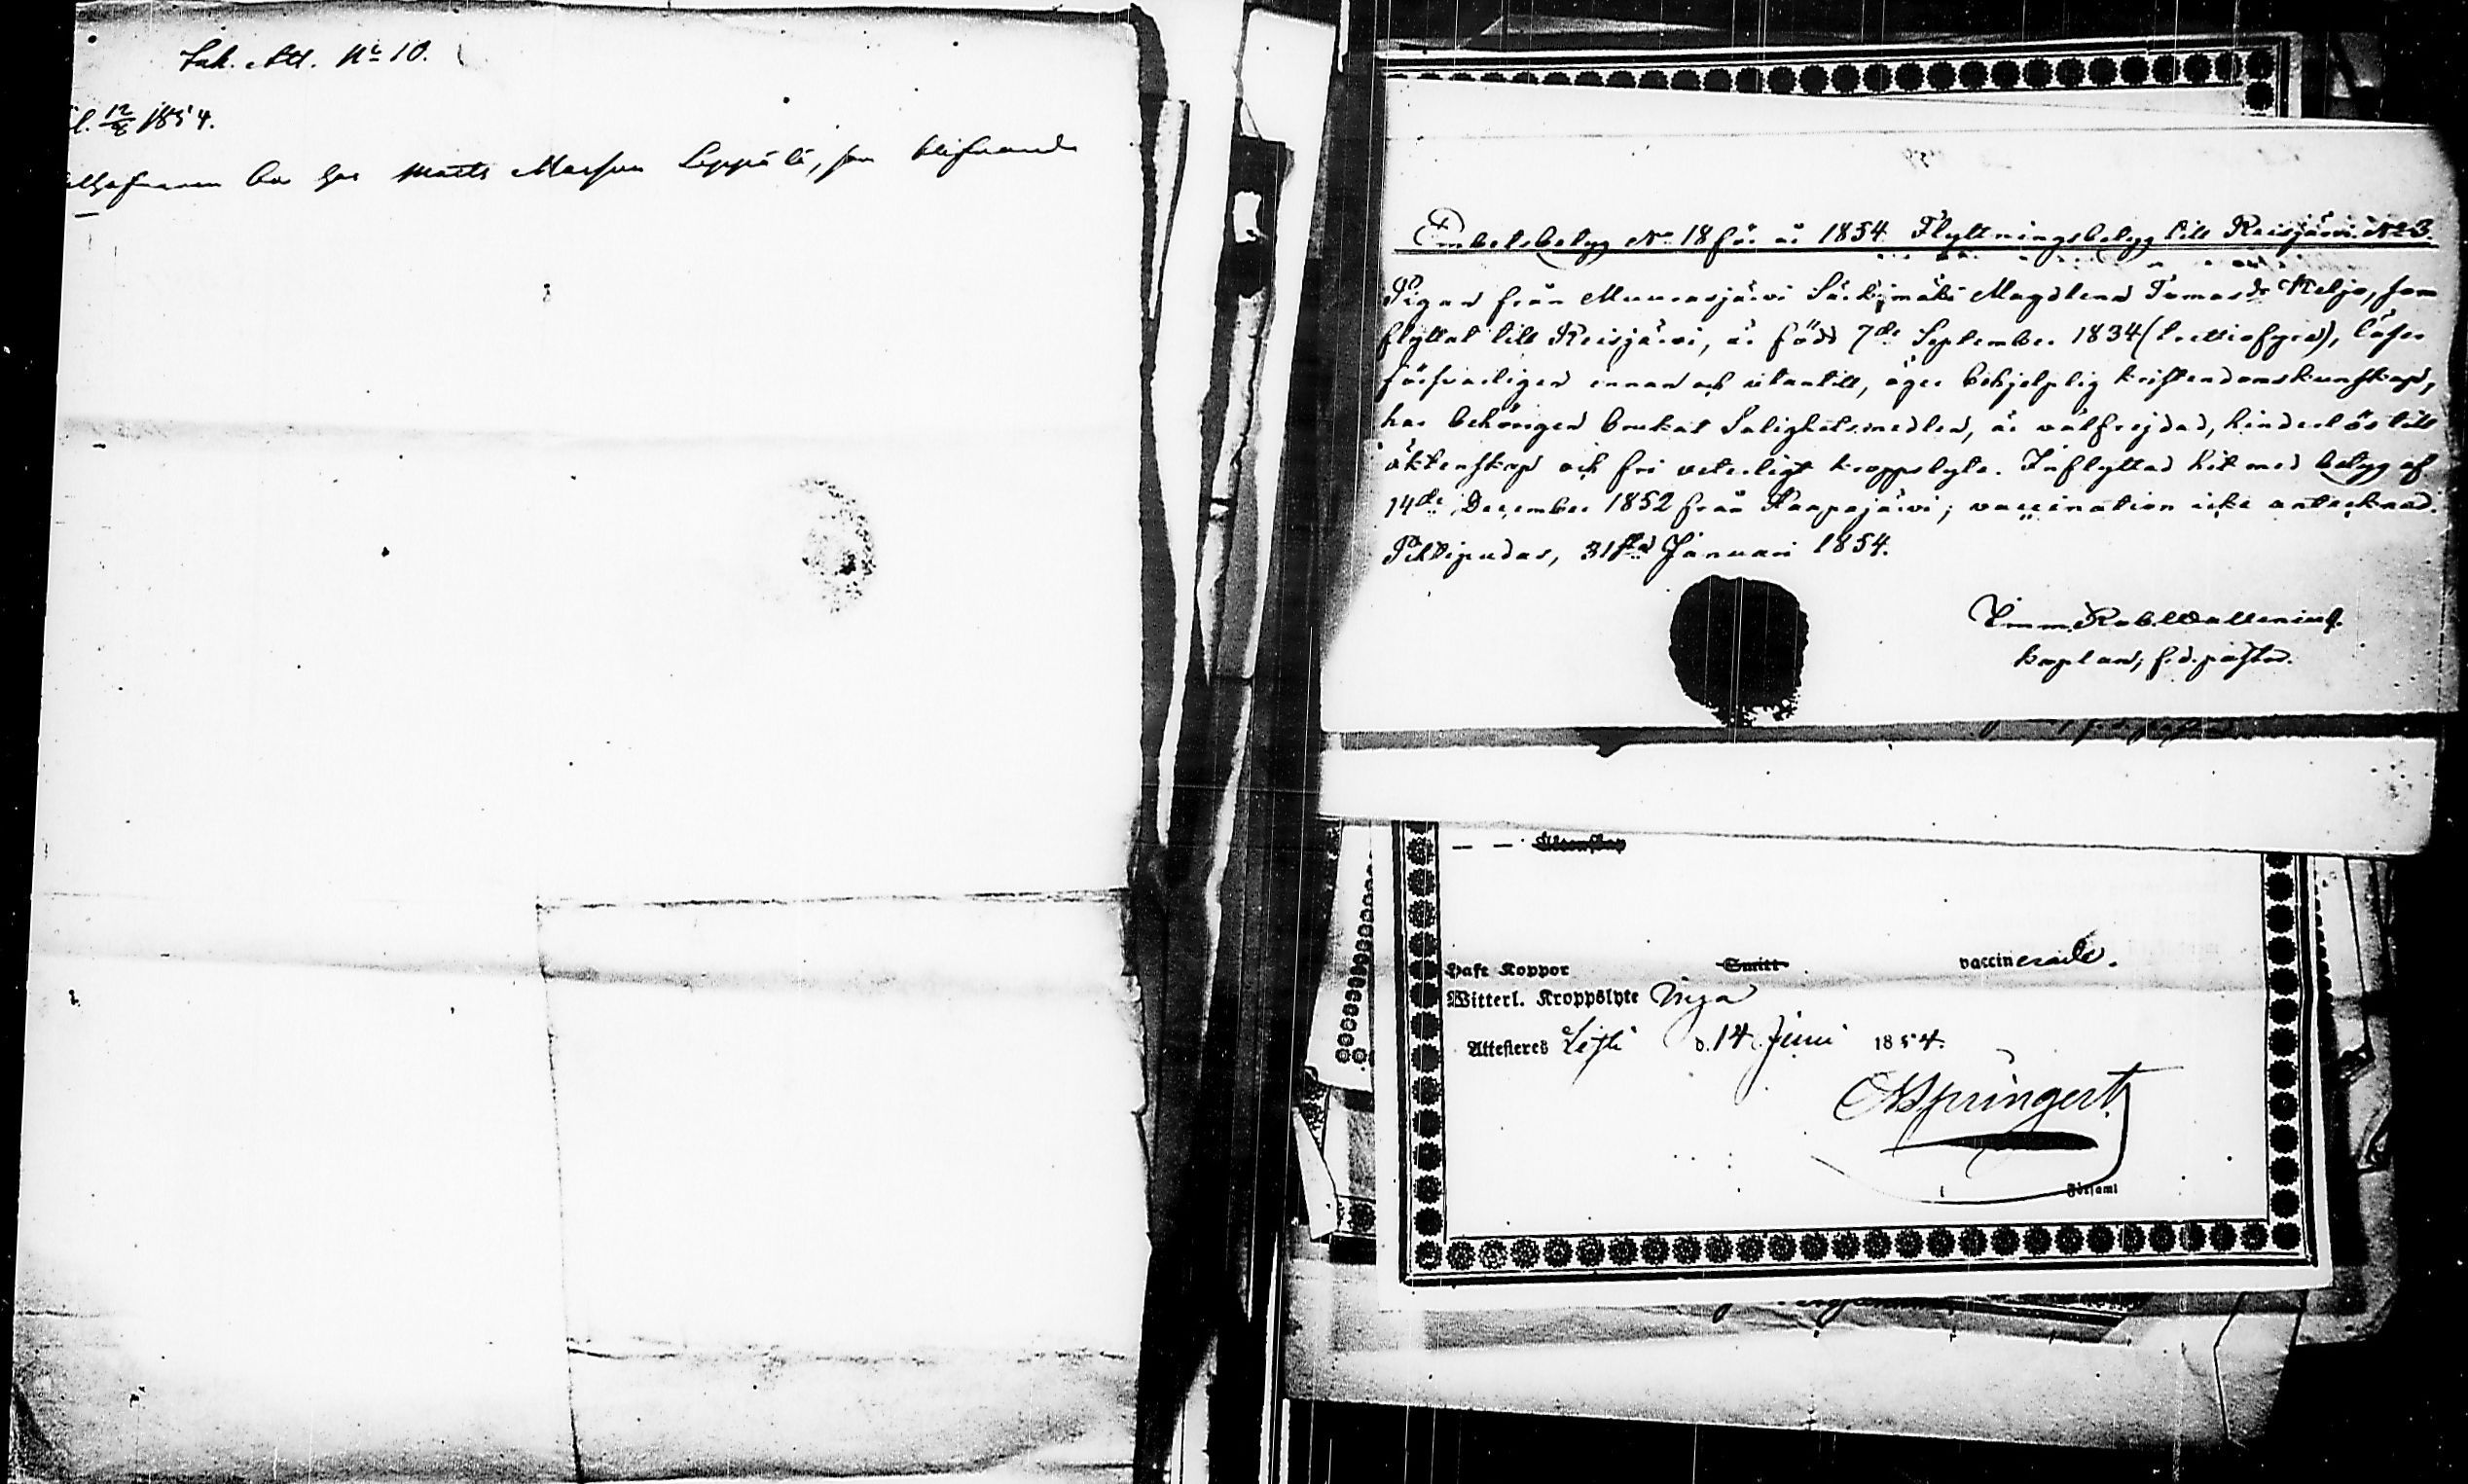 Ink. Att. No 10.
12/8 1854.
bor hos Matts Matsson Leppälä, som blifvande
Embetsbetyg No 18 för år 1854. Flyttningsbetyg till Reisjärvi No 3.
Pigan från Muurasjärvi Särkimäki Magdlena Tomasdr Keljo, som
flyttat till Reisjärvi, är född 7de September 1834 (trettiofyra), läser
försvarligen innan och utantill, äger behjelplig kristendomskunskap,
har behörigen brukat Salighetsmedlen, är välfrejdad, hinderlös till
äktenskap och fri veterligt kroppslyte. Inflyttad hit med betyg af
14de December 1852 från Haapajärvi; vaccination icke antecknad.
Pihtipudas, 31sta Januari 1854.
Imm. Rob. Wallenius.
kaplan, f.d. pastor.
— — Äktenskap
Haft Koppor Smitt vaccinerade.
Witterl. Kroppslyte Inga
Attesteras Lesti d. 14 Juni 1854.
Springert
Församl